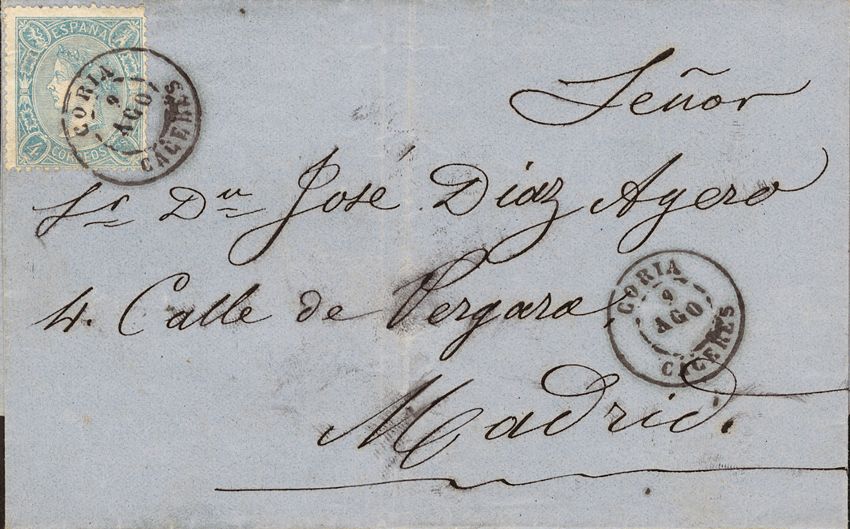 ESPAÑA
CORREOS
CORIA
9
AGO
CACERES
Señor
Sr Dn José Diaz Agero
4. Calle de Vergara
Madrid.
CORIA
9
AGO
CACERES